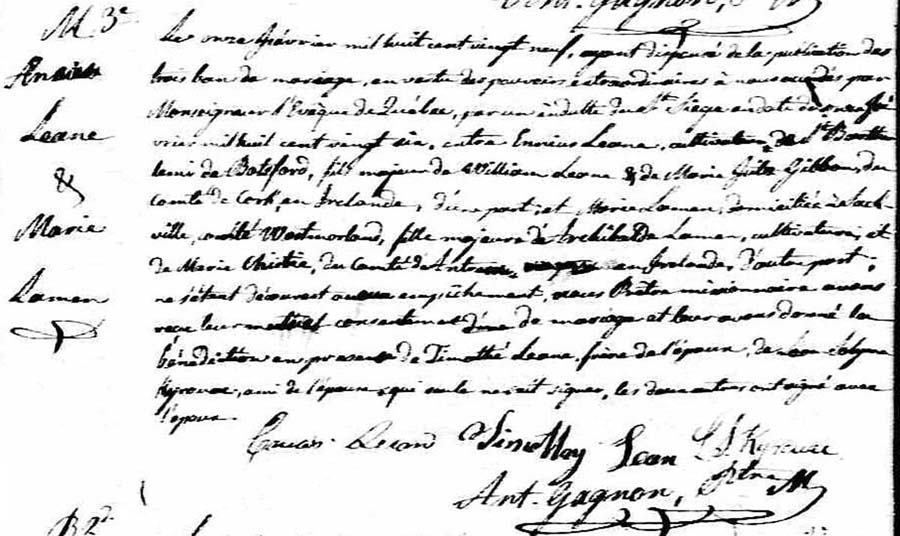 Ant. Gagnon, P M
M 3e
Leane
&
Marie
Lamen
Le onze février mil huit cent vingt neuf, ayant dispensé de la publication des
trois ban de mariage, en vertu des pouvoirs extraordinaires à nous accordés par
Monseigneur l'Evêque de Québec, par un indulte du St. Siege en date du onze fé
vrier mil huit cent vingt six, entre Leane, cultivateur de St. Barthe
lemi de Botsford, fils majeur de William Leane & de Marie Gibbon, du
Comté de Cork, en Irelande, d'une part; et Marie Lamen, domiciliée à Sack-
ville, comté Westmorland, fille majeure de Archibald Lamen, cultivateur, et
de Marie Christie, du Comté d'Antrem, en Irelande, d'autre part;
ne s'étant découvert aucun empêchement, nous Prêtre missionnaire avons
reçu leur mutuel consentement de mariage et leur avons donné la
bénédiction en presence de Timothé Leane, frère de l'époux, de
Kyrouac, ami de l'époux, qui seule ne sait signer, les deux autres ont signé avec
l'époux.
Leane Timothy Lean Kyrouac
Ant. Gagnon, Ptre M
B 2d.